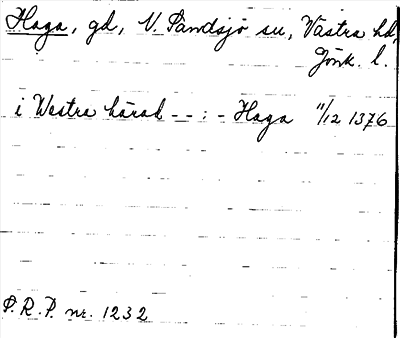 Haga, gd, N. Sandsjö sn, Västra hd,
Jönk. l.
i Westra härad - - : - Haga 11/12 1376
P. R. P. nr. 1232